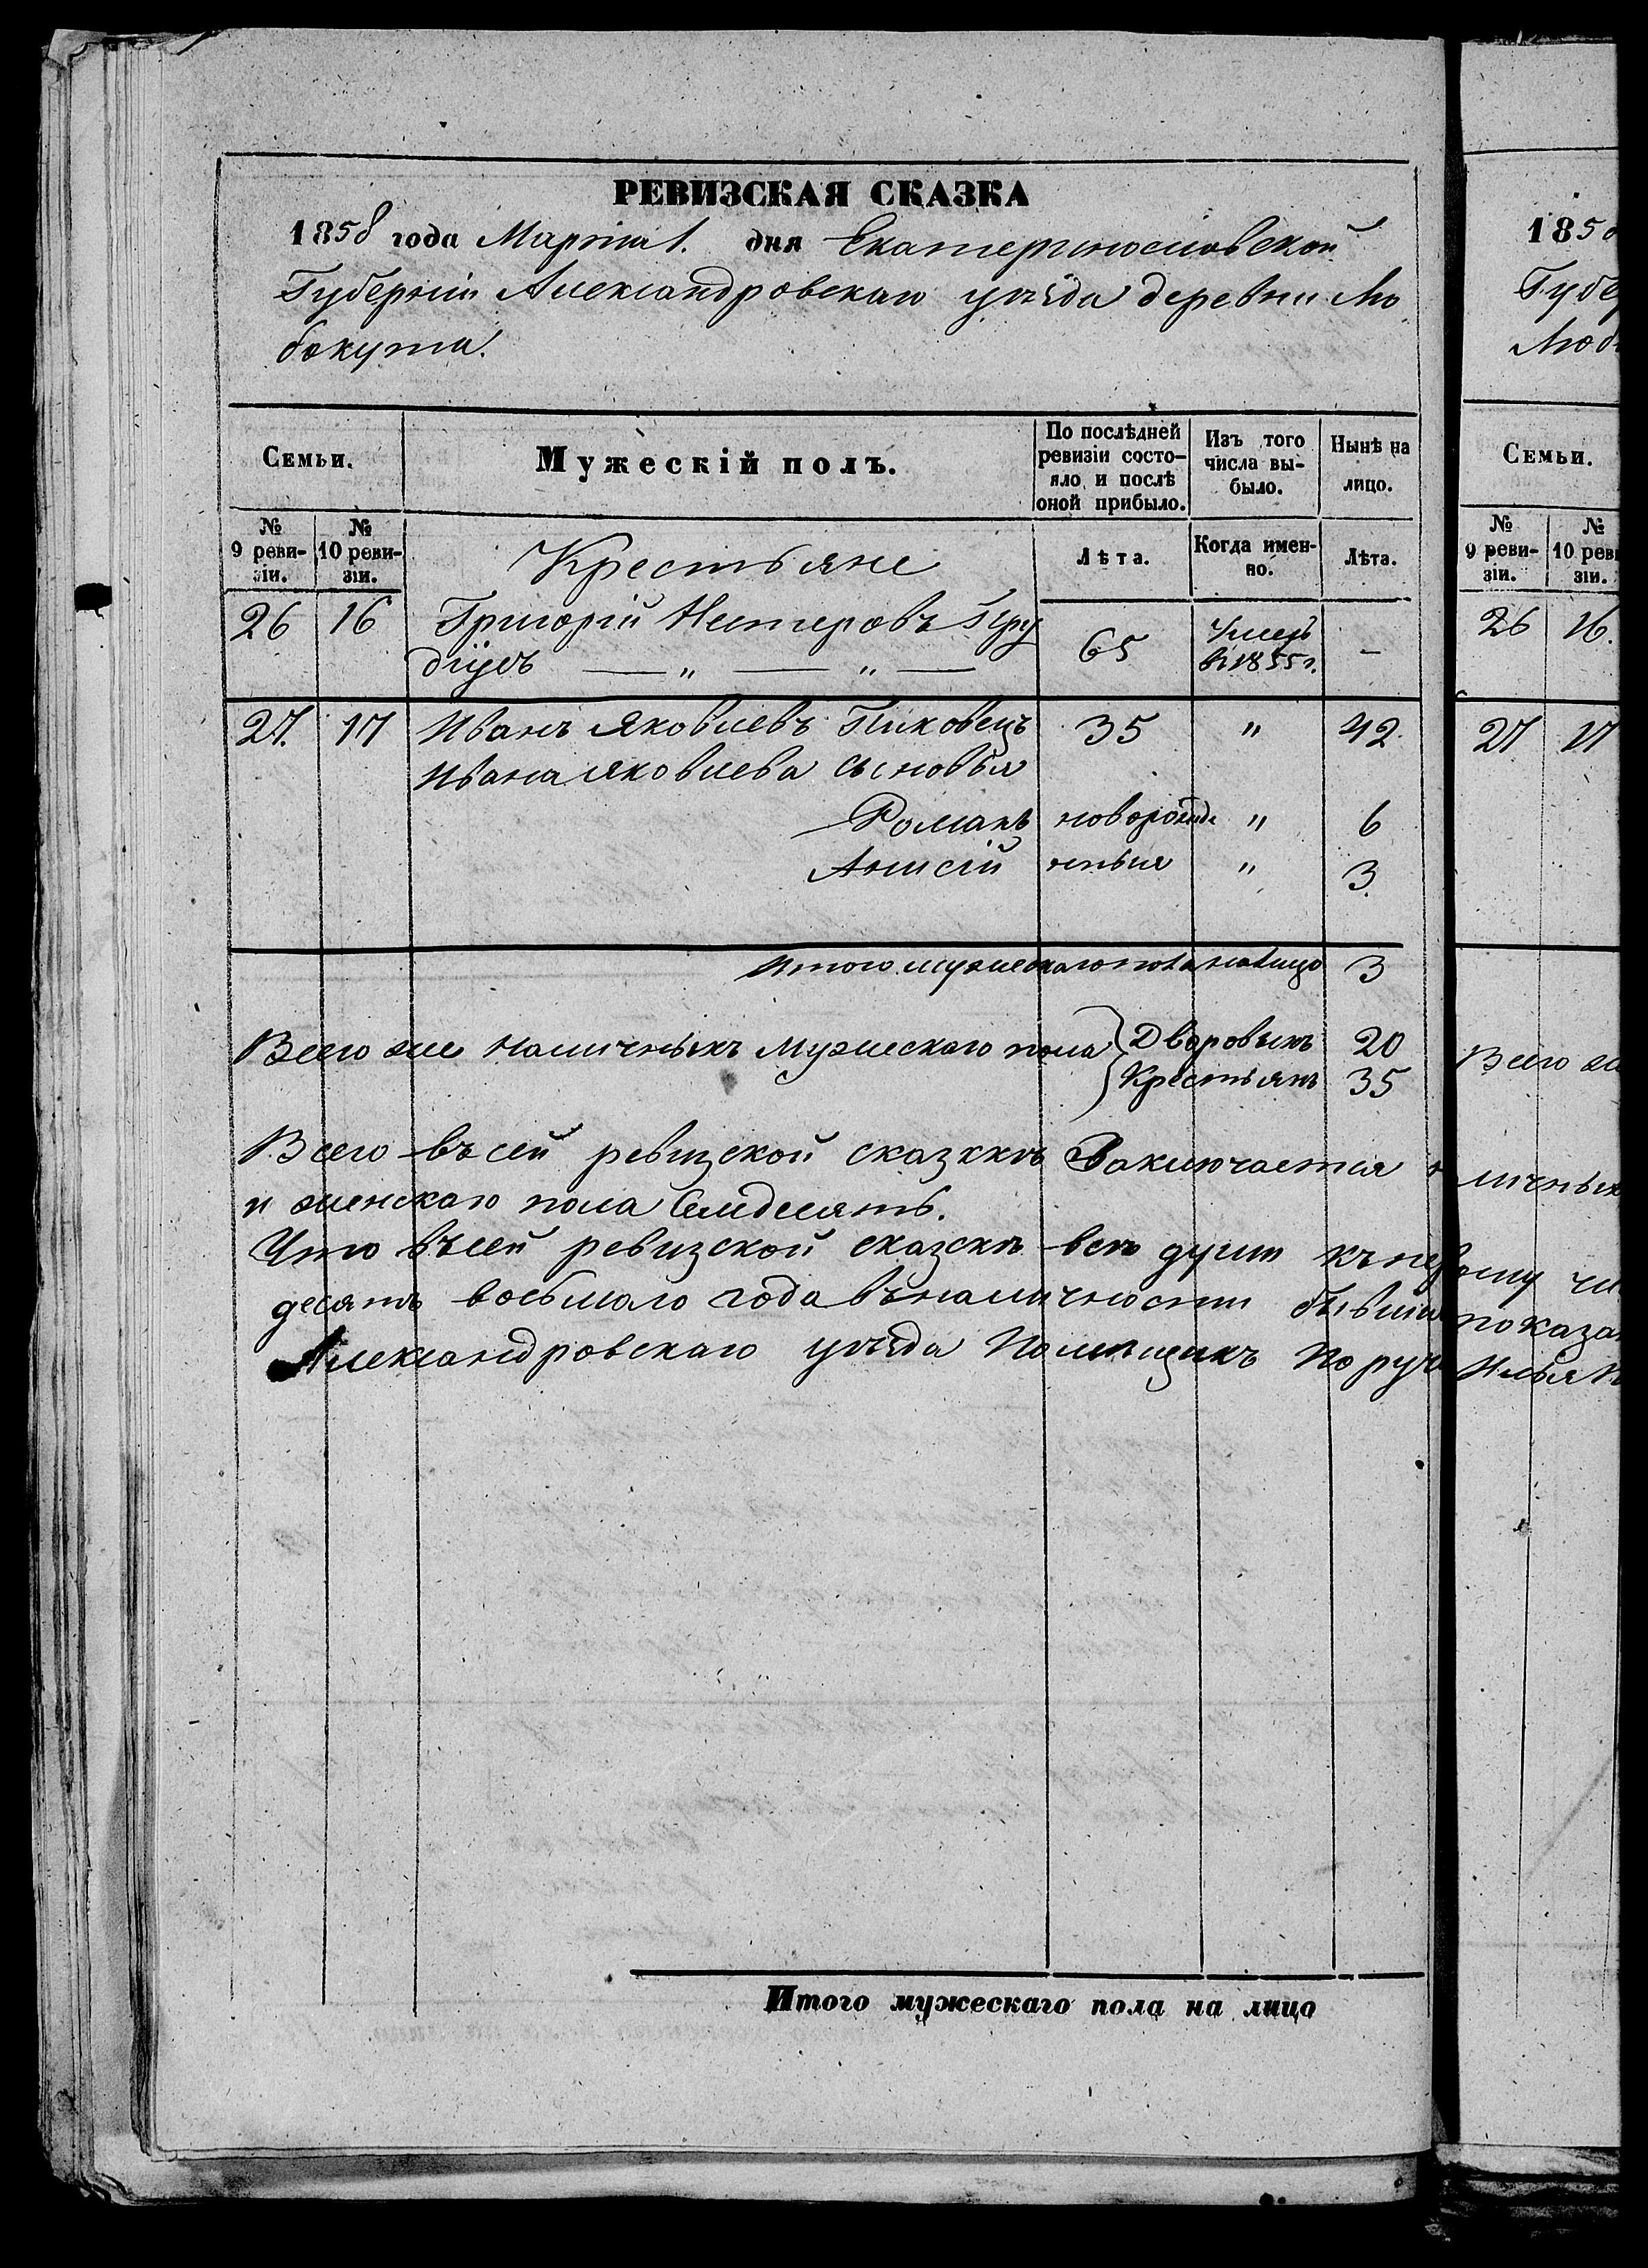 РЕВИЗСКАЯ СКАЗКА
1858 года Марта 1. дня Екатеринославской
Губерніи Александровскаго уѣзда деревни Лю
бокута.
Семьи. Мужескій полъ. По послѣдней ревизіи состояло и послѣ оной прибыло. Изъ того числа выбыло. Нынѣ на лицо.
№ 9 ревизіи. № 10 ревизіи. Крестьяне Лѣта. Когда именно. Лѣта.
26 16 Григорій Нестеровъ 65 Умеръ –
— „ — „ — в 1855 г.
27. 17 Иванъ Яковлевъ 35 " 42
Ивана Яковлева сыновья
Романъ новорожд " 6
Анисій енныя " 3.
Итого мужескаго пола налицо 3
Всего же наличныхъ мужескаго пола Дворовыхъ 20
Крестьянъ 35
Всего въ сей ревизской сказкѣ Заключается
и женскаго пола Семдесятъ.
Что въ сей ревизской сказкѣ всѣ души къ первому
десятъ восьмаго года въ наличности бывшія
Александровскаго уѣзда Помѣщикъ Поруч
Итого мужескаго пола на лицо
185
Губер
Люб
Семьи.
№ 9 ревизіи. № 10 рев зіи.
26 16.
27 17
Всего
личных
показан
Илья